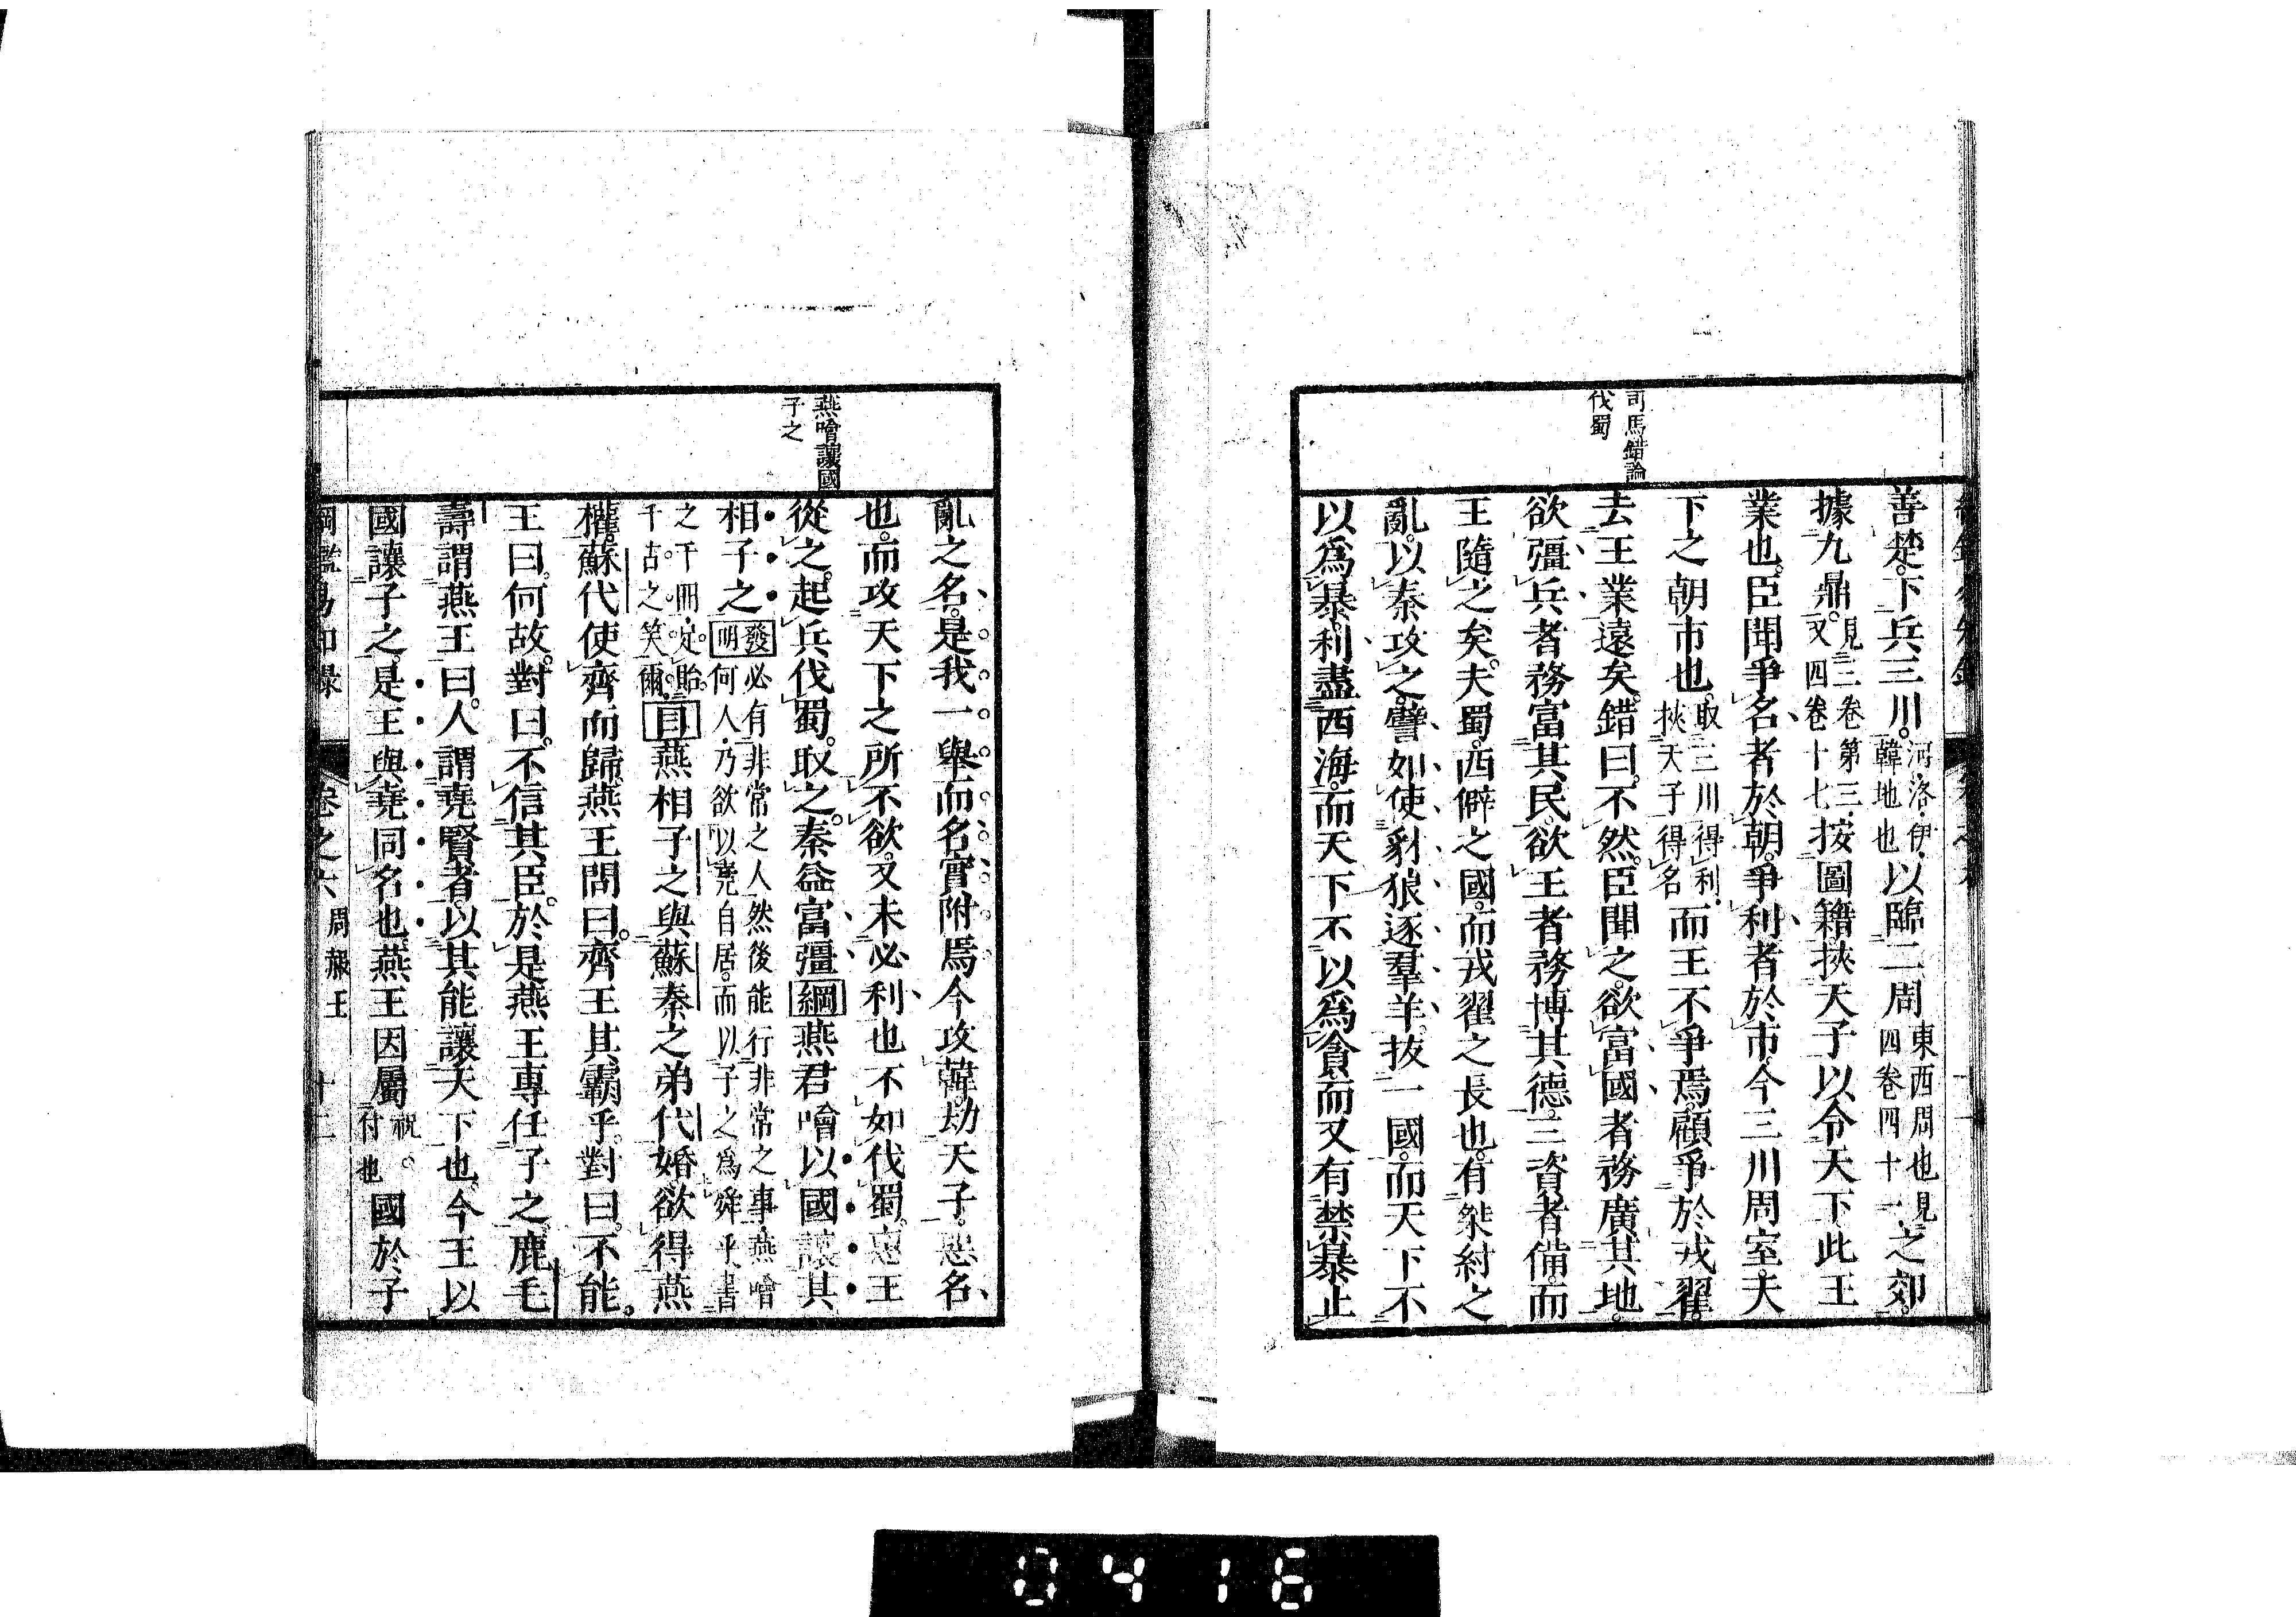 司馬錯論
伐蜀
善楚。下兵三川。河洛伊。韓地也以臨二周東西周也見四卷四十一之郊。
據九鼎。見二卷第三又四卷十七按圖籍挾天子以令天下此王
業也。臣聞爭名者於朝。爭利者於市。今三川周室。天
下之朝市也。取三川得利。挾天子得名而王不爭焉。顧爭於戎翟。
去王業遠矣。錯曰。不然。臣聞之。欲富國者務廣其地。
欲彊兵者務富其民。欲王者務博其德。三資者備。而
王隨之矣。夫蜀。西僻之國。而戎翟之長也。有桀紂之
亂。以秦攻之。譬如使豺狼逐羣羊。拔一國。而天下不
以爲暴。利盡西海。而天下不以爲貪。而又有禁暴止
燕噲讓國
子之
亂之名。是我一舉而名實附焉今攻韓。劫天子。惡名
也。而攻天下之所不欲。又未必利也不如伐蜀。惠王
從之。起兵伐蜀。取之。秦益富彊綱燕君噲以國讓其
相子之發明必有非常之人然後能行非常之事。燕噲何人。乃欲以堯自居。而以子之爲舜乎書
之千冊。定貽千古之笑爾目燕相子之與蘇秦之弟代婚欲得燕
權。蘇代使齊而歸。燕王問曰。齊王其霸乎。對曰。不能。
王曰。何故。對曰。不信其臣。於是燕王專任子之。鹿毛
壽謂燕王曰。人謂堯賢者。以其能讓天下也。今王以
國讓子之。是王與堯同名也。燕王因屬祝。付也國於子
綱鑑易知錄 卷之六 周赧王 十二